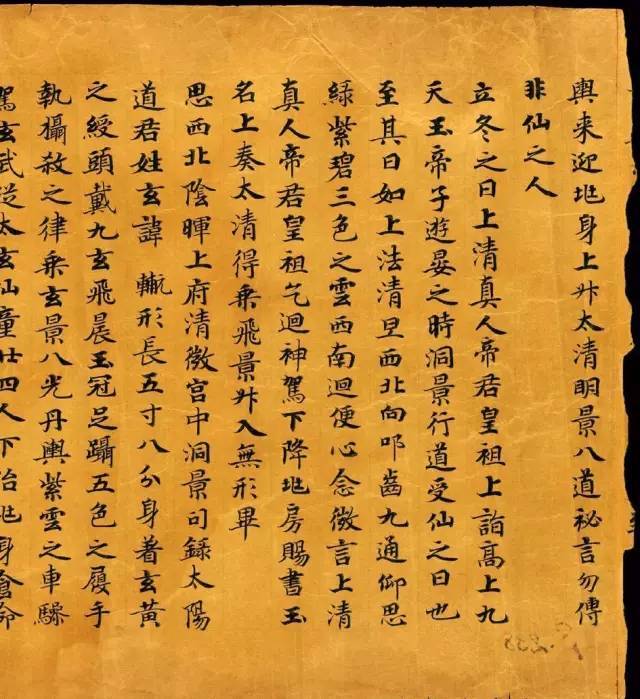 輿来迎兆身上升太清明景八道祕言勿傳
非仙之人
立冬之日上清真人帝君皇祖上詣高上九
天玉帝子遊晏之時洞景行道受仙之日也
至其日如上法清旦西北向叩齒九通仰思
緑紫碧三色之雲西南迴便心念微言上清
真人帝君皇祖乞迴神駕下降兆房賜書玉
名上奏太清得乘飛景升入無形畢
思西北陰暉上府清微宮中洞景司録太陽
道君姓玄諱 形長五寸八分身著玄黄
之綬頭戴九玄飛晨玉冠足躡五色之履手
執攝殺之律乘玄景八光丹輿紫雲之車驂
駕玄武從太玄仙童廿四人下治兆身